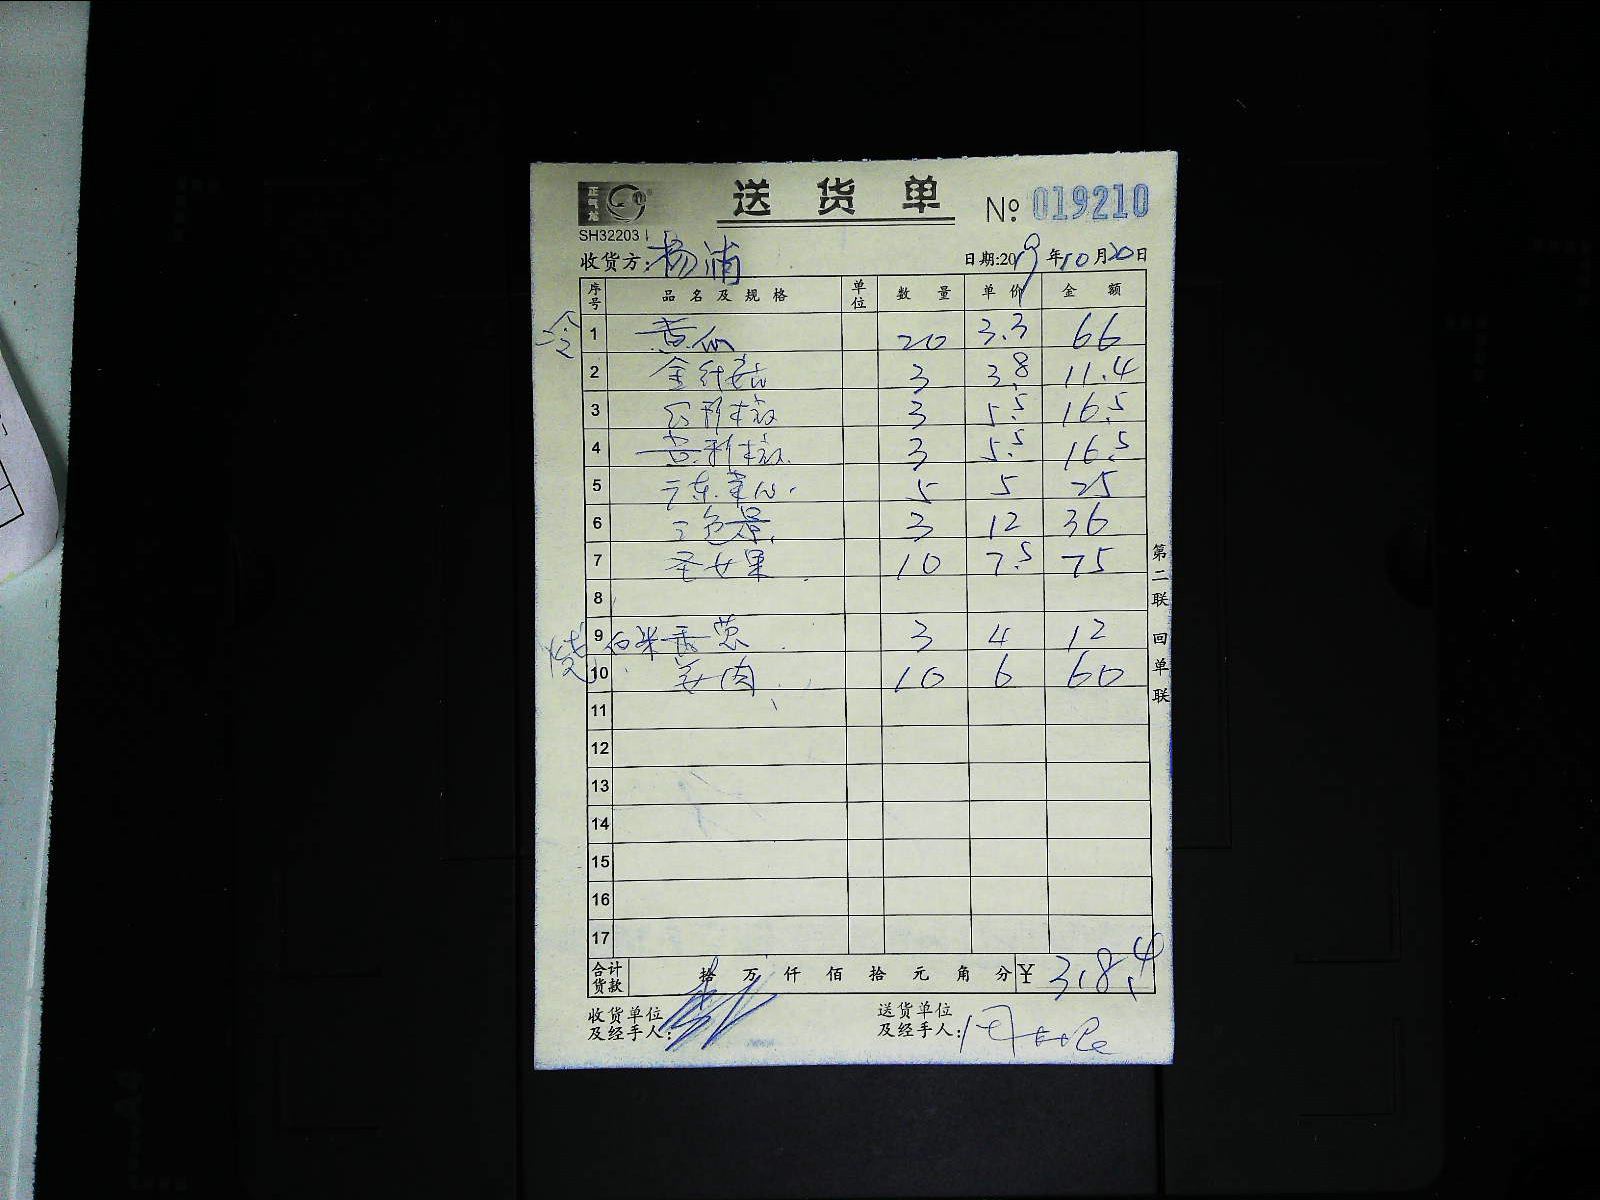 正气龙
送 货 单
№ 019210
SH32203
收货方: 杨浦 日期:2019年10月20日
序号 品名及规格 单位 数量 单价 金额
冷 1 黄瓜 20 3.3 66
2 金针菇 3 3.8 11.4
3 红彩椒 3 5.5 16.5
4 黄彩椒 3 5.5 16.5
5 广东菜心 5 5 25
6 三色堇 3 12 36
7 圣女果 10 7.5 75
8
9 香葱 3 4 12
10 姜肉 10 6 60
11
12
13
14
15
16
17
合计货款 拾 万 仟 佰 拾 元 角 分 ¥ 318.4
收货单位及经手人:
送货单位及经手人:
第二联 回单联